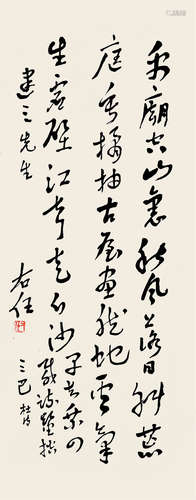 禹廟空山裏秋風落日斜荒
庭垂橘柚古屋畫龍蛇雲氣
生虛壁江聲走白沙早知乘四
載疏鑿控
三巴 杜詩
建三先生
右任